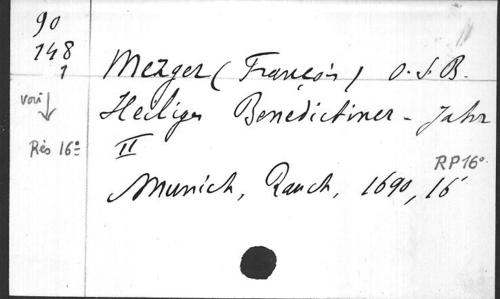 90
148
1
voir ↓
Rés 16°
Mezger (François) O.S.B.
Heiliges Benedictiner-Jahr
II
RP 16°
Munich, Rauch, 1690, 16°